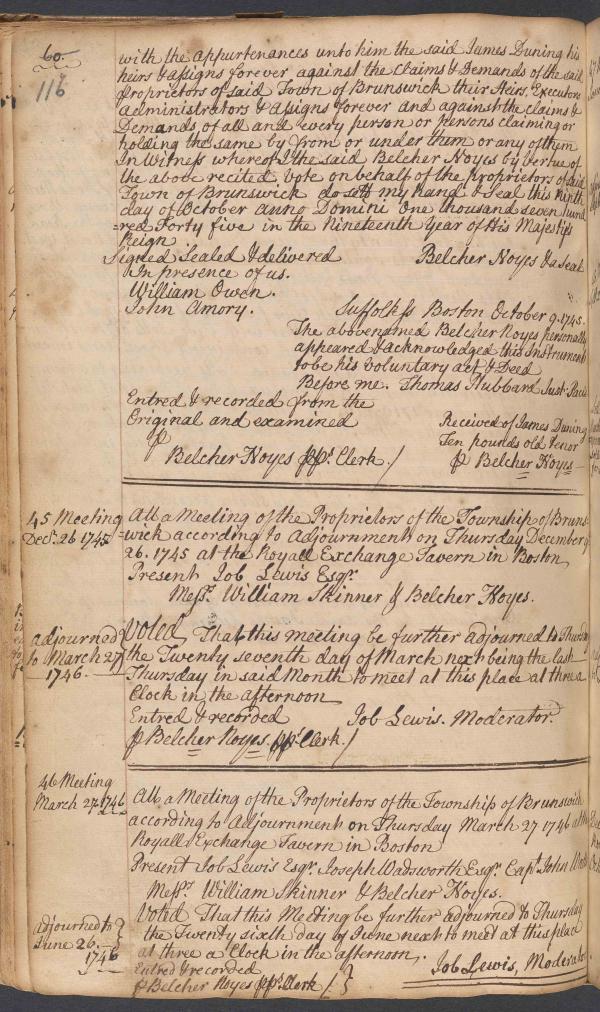 60.
116
with the appurtenances unto him the said James Duning his
heirs & assigns forever against the Claims & Demands of the said
Proprietors of said Town of Brunswick their Heirs, Executors
Administrators & assigns forever and against the claims &
Demands of all and every person or persons claiming or
holding the same by from or under them or any of them
In Witness whereof I the said Belcher Noyes by vertue of
the above recited Vote on behalf of the proprietors of said
Town of Brunswick do sett my hand & Seal this Ninth
day of October Anno Domini One thousand seven hund
=red Forty five in the Nineteenth Year of His Majestys
Reign
Signed Sealed & delivered Belcher Noyes & a Seal
In presence of us.
William Owen.
John Amory. Suffolk ss Boston October 9. 1745.
The abovenamed Belcher Noyes personally
appeared & acknowledged this Instrument
to be his voluntary act & Deed
Before me. Thomas Hubbard Just: Pacis
Entred & recorded from the
Original and examined
Received of James Duning
Ten pounds old tenor
p Belcher Noyes pps. Clerk. / p Belcher Noyes
45 Meeting
Decr. 26 1745
Att a Meeting of the Proprietors of the Township of Bruns
=wick according to Adjournment on Thursday December
26. 1745 at the Royall Exchange Tavern in Boston
Present Job Lewis Esqr.
Messrs. William Skinner & Belcher Noyes.
adjourned
to March 27
1746.
Voted That this meeting be further adjourned to Thursday
the Twenty seventh day of March next being the last
Thursday in said Month to meet at this place at three a
Clock in the afternoon
Entred & recorded Job Lewis. Moderator.
p Belcher Noyes. pps. Clerk. /
46 Meeting
March 27. 1746
Att a Meeting of the Proprietors of the Township of Brunswick
according to Adjournment on Thursday March 27 1746 at the
Royall Exchange Tavern in Boston
Present Job Lewis Esqr. Joseph Wadsworth Esqr. Capt. John
Messrs. William Skinner & Belcher Noyes.
adjourned to
June 26.
1746
Voted That this Meeting be further adjourned to Thursday
the Twenty sixth day of June next to meet at this place
at three a Clock in the afternoon.
Entred & recorded Job Lewis, Moderator
p Belcher Noyes pps. Clerk /